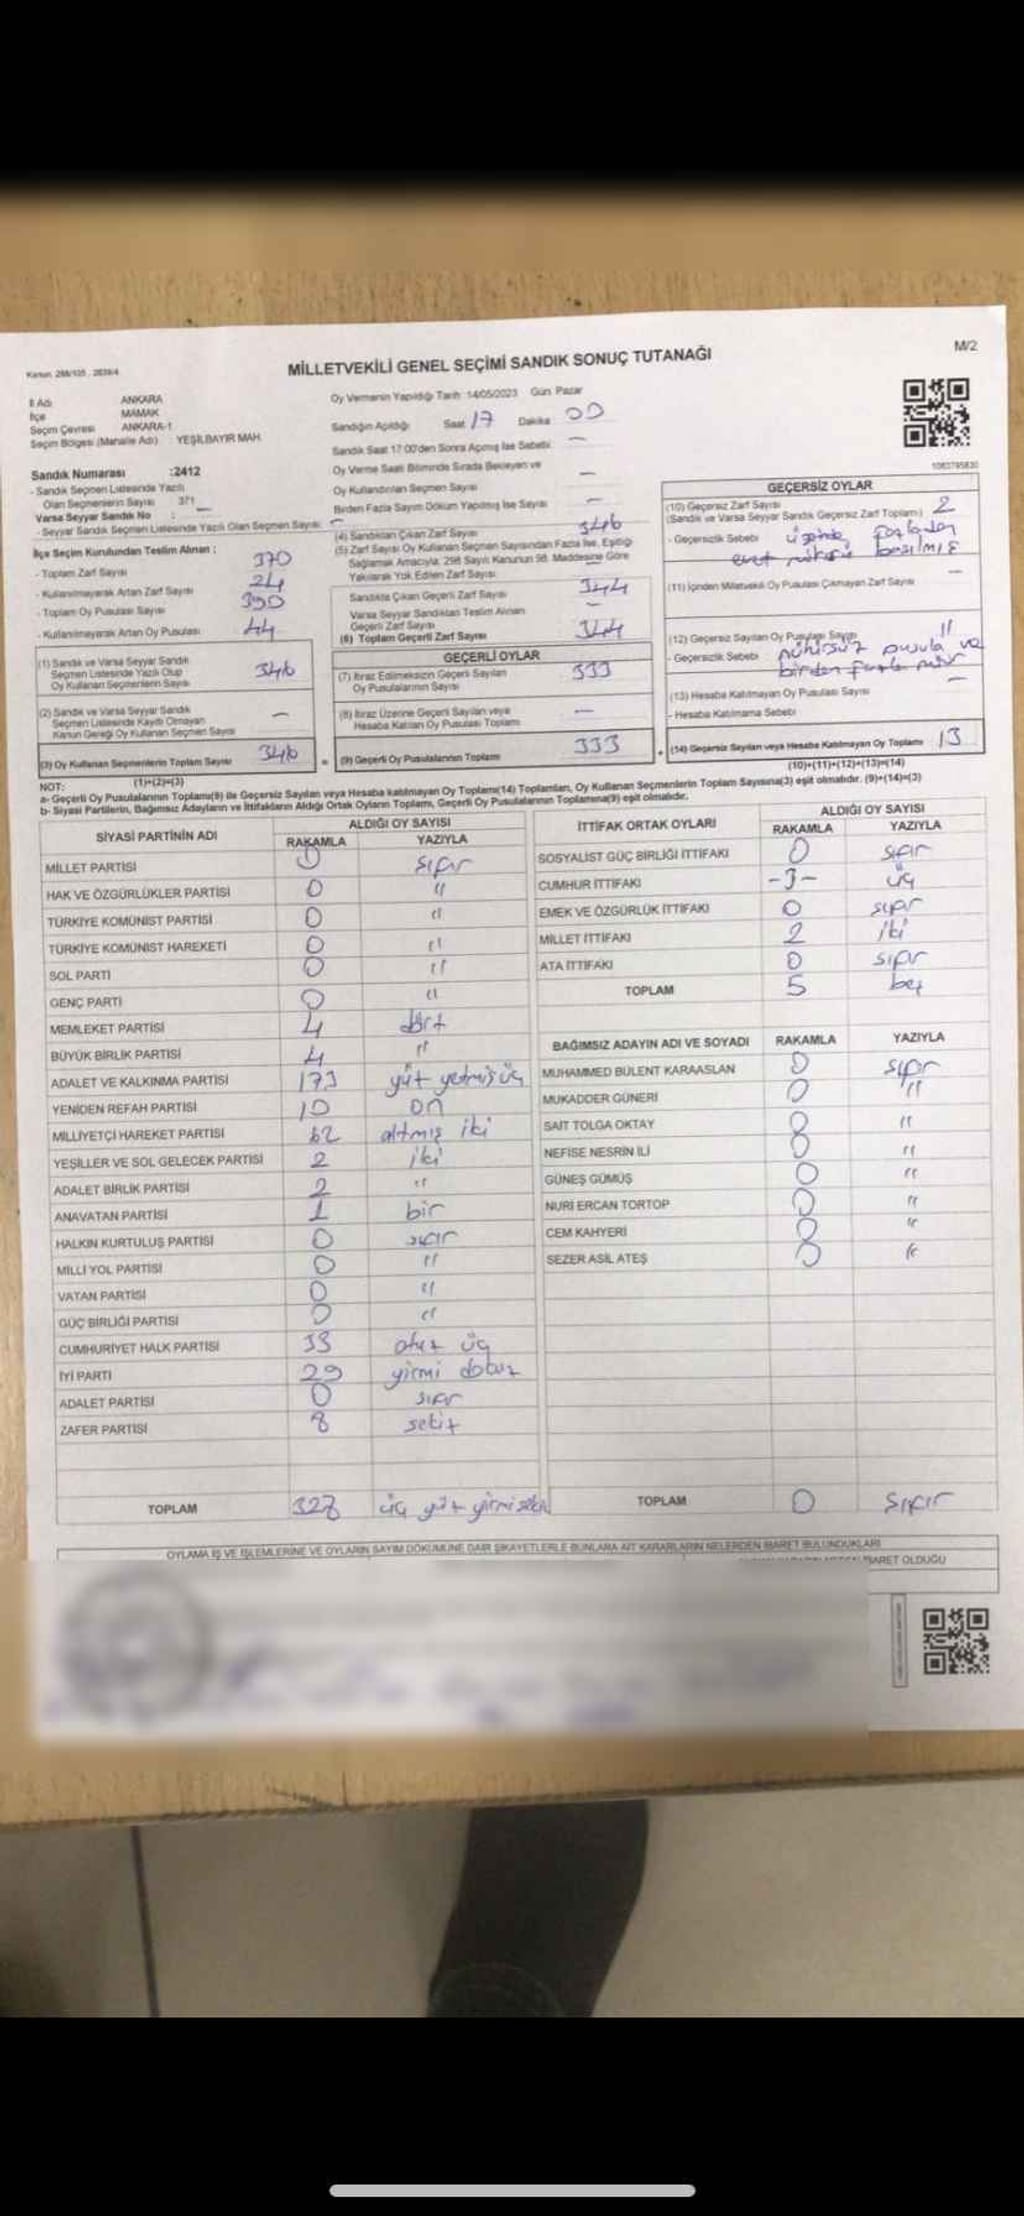 Kanun: 298/105, 2839/4
MİLLETVEKİLİ GENEL SEÇİMİ SANDIK SONUÇ TUTANAĞI
M/2
İl Adı ANKARA
İlçe MAMAK
Seçim Çevresi ANKARA-1
Seçim Bölgesi (Mahalle Adı) YEŞİLBAYIR MAH.
Oy Vermenin Yapıldığı Tarih: 14/05/2023 Gün: Pazar
Sandığın Açıldığı Saat 17 Dakika 00
Sandık Saat 17:00'den Sonra Açılmış İse Sebebi: —
Oy Verme Saati Bitiminde Sırada Bekleyen ve
Oy Kullandırılan Seçmen Sayısı —
Birden Fazla Sayım Döküm Yapılmış İse Sayısı —
Sandık Numarası :2412
- Sandık Seçmen Listesinde Yazılı
Olan Seçmenlerin Sayısı 371
Varsa Seyyar Sandık No : —
- Seyyar Sandık Seçmen Listesinde Yazılı Olan Seçmen Sayısı: —
İlçe Seçim Kurulundan Teslim Alınan :
- Toplam Zarf Sayısı 370
- Kullanılmayarak Artan Zarf Sayısı 24
- Toplam Oy Pusulası Sayısı 390
- Kullanılmayarak Artan Oy Pusulası 44
(1) Sandık ve Varsa Seyyar Sandık
Seçmen Listesinde Yazılı Olup
Oy Kullanan Seçmenlerin Sayısı 346
(2) Sandık ve Varsa Seyyar Sandık
Seçmen Listesinde Kayıtlı Olmayan
Kanun Gereği Oy Kullanan Seçmen Sayısı —
(3) Oy Kullanan Seçmenlerin Toplam Sayısı 346
(1)+(2)=(3)
(4) Sandıktan Çıkan Zarf Sayısı 346
(5) Zarf Sayısı Oy Kullanan Seçmen Sayısından Fazla İse, Eşitliği
Sağlamak Amacıyla, 298 Sayılı Kanunun 98. Maddesine Göre
Yakılarak Yok Edilen Zarf Sayısı —
Sandıkta Çıkan Geçerli Zarf Sayısı 344
Varsa Seyyar Sandıktan Teslim Alınan
Geçerli Zarf Sayısı —
(6) Toplam Geçerli Zarf Sayısı 344
GEÇERLİ OYLAR
(7) İtiraz Edilmeksizin Geçerli Sayılan
Oy Pusulalarının Sayısı 333
(8) İtiraz Üzerine Geçerli Sayılan veya
Hesaba Katılan Oy Pusulası Toplamı —
(9) Geçerli Oy Pusulalarının Toplamı 333
1083795830
GEÇERSİZ OYLAR
(10) Geçersiz Zarf Sayısı
(Sandık ve Varsa Seyyar Sandık Geçersiz Zarf Toplamı) 2
- Geçersizlik Sebebi üzerinde fazladan
evet mührü basılmış
(11) İçinden Milletvekili Oy Pusulası Çıkmayan Zarf Sayısı —
(12) Geçersiz Sayılan Oy Pusulası Sayısı 11
- Geçersizlik Sebebi mühürsüz pusula ve
birden fazla mühür
(13) Hesaba Katılmayan Oy Pusulası Sayısı —
- Hesaba Katılmama Sebebi
(14) Geçersiz Sayılan veya Hesaba Katılmayan Oy Toplamı 13
(10)+(11)+(12)+(13)=(14)
NOT:
a- Geçerli Oy Pusulalarının Toplamı(9) ile Geçersiz Sayılan veya Hesaba katılmayan Oy Toplamı(14) Toplamları, Oy Kullanan Seçmenlerin Toplam Sayısına(3) eşit olmalıdır. (9)+(14)=(3)
b- Siyasi Partilerin, Bağımsız Adayların ve İttifakların Aldığı Ortak Oyların Toplamı, Geçerli Oy Pusulalarının Toplamına(9) eşit olmalıdır.
SİYASİ PARTİNİN ADI ALDIĞI OY SAYISI
RAKAMLA YAZIYLA
MİLLET PARTİSİ 0 sıfır
HAK VE ÖZGÜRLÜKLER PARTİSİ 0 "
TÜRKİYE KOMÜNİST PARTİSİ 0 "
TÜRKİYE KOMÜNİST HAREKETİ 0 "
SOL PARTİ 0 "
GENÇ PARTİ 0 "
MEMLEKET PARTİSİ 4 dört
BÜYÜK BİRLİK PARTİSİ 4 "
ADALET VE KALKINMA PARTİSİ 173 yüz yetmiş üç
YENİDEN REFAH PARTİSİ 10 on
MİLLİYETÇİ HAREKET PARTİSİ 62 altmış iki
YEŞİLLER VE SOL GELECEK PARTİSİ 2 iki
ADALET BİRLİK PARTİSİ 2 "
ANAVATAN PARTİSİ 1 bir
HALKIN KURTULUŞ PARTİSİ 0 sıfır
MİLLİ YOL PARTİSİ 0 "
VATAN PARTİSİ 0 "
GÜÇ BİRLİĞİ PARTİSİ 0 "
CUMHURİYET HALK PARTİSİ 33 otuz üç
İYİ PARTİ 29 yirmi dokuz
ADALET PARTİSİ 0 sıfır
ZAFER PARTİSİ 8 sekiz
TOPLAM 328 üç yüz yirmi sekiz
İTTİFAK ORTAK OYLARI ALDIĞI OY SAYISI
RAKAMLA YAZIYLA
SOSYALİST GÜÇ BİRLİĞİ İTTİFAKI 0 sıfır
CUMHUR İTTİFAKI -3- üç
EMEK VE ÖZGÜRLÜK İTTİFAKI 0 sıfır
MİLLET İTTİFAKI 2 iki
ATA İTTİFAKI 0 sıfır
TOPLAM 5 beş
BAĞIMSIZ ADAYIN ADI VE SOYADI RAKAMLA YAZIYLA
MUHAMMED BÜLENT KARAASLAN 0 sıfır
MUKADDER GÜNERİ 0 "
SAİT TOLGA OKTAY 0 "
NEFİSE NESRİN İLİ 0 "
GÜNEŞ GÜMÜŞ 0 "
NURİ ERCAN TORTOP 0 "
CEM KAHYERİ 0 "
SEZER ASİL ATEŞ 0 "
TOPLAM 0 sıfır
OYLAMA İŞ VE İŞLEMLERİNE VE OYLARIN SAYIM DÖKÜMÜNE DAİR ŞİKAYETLERLE BUNLARA AİT KARARLARIN NELERDEN İBARET BULUNDUKLARI
İBARET OLDUĞU